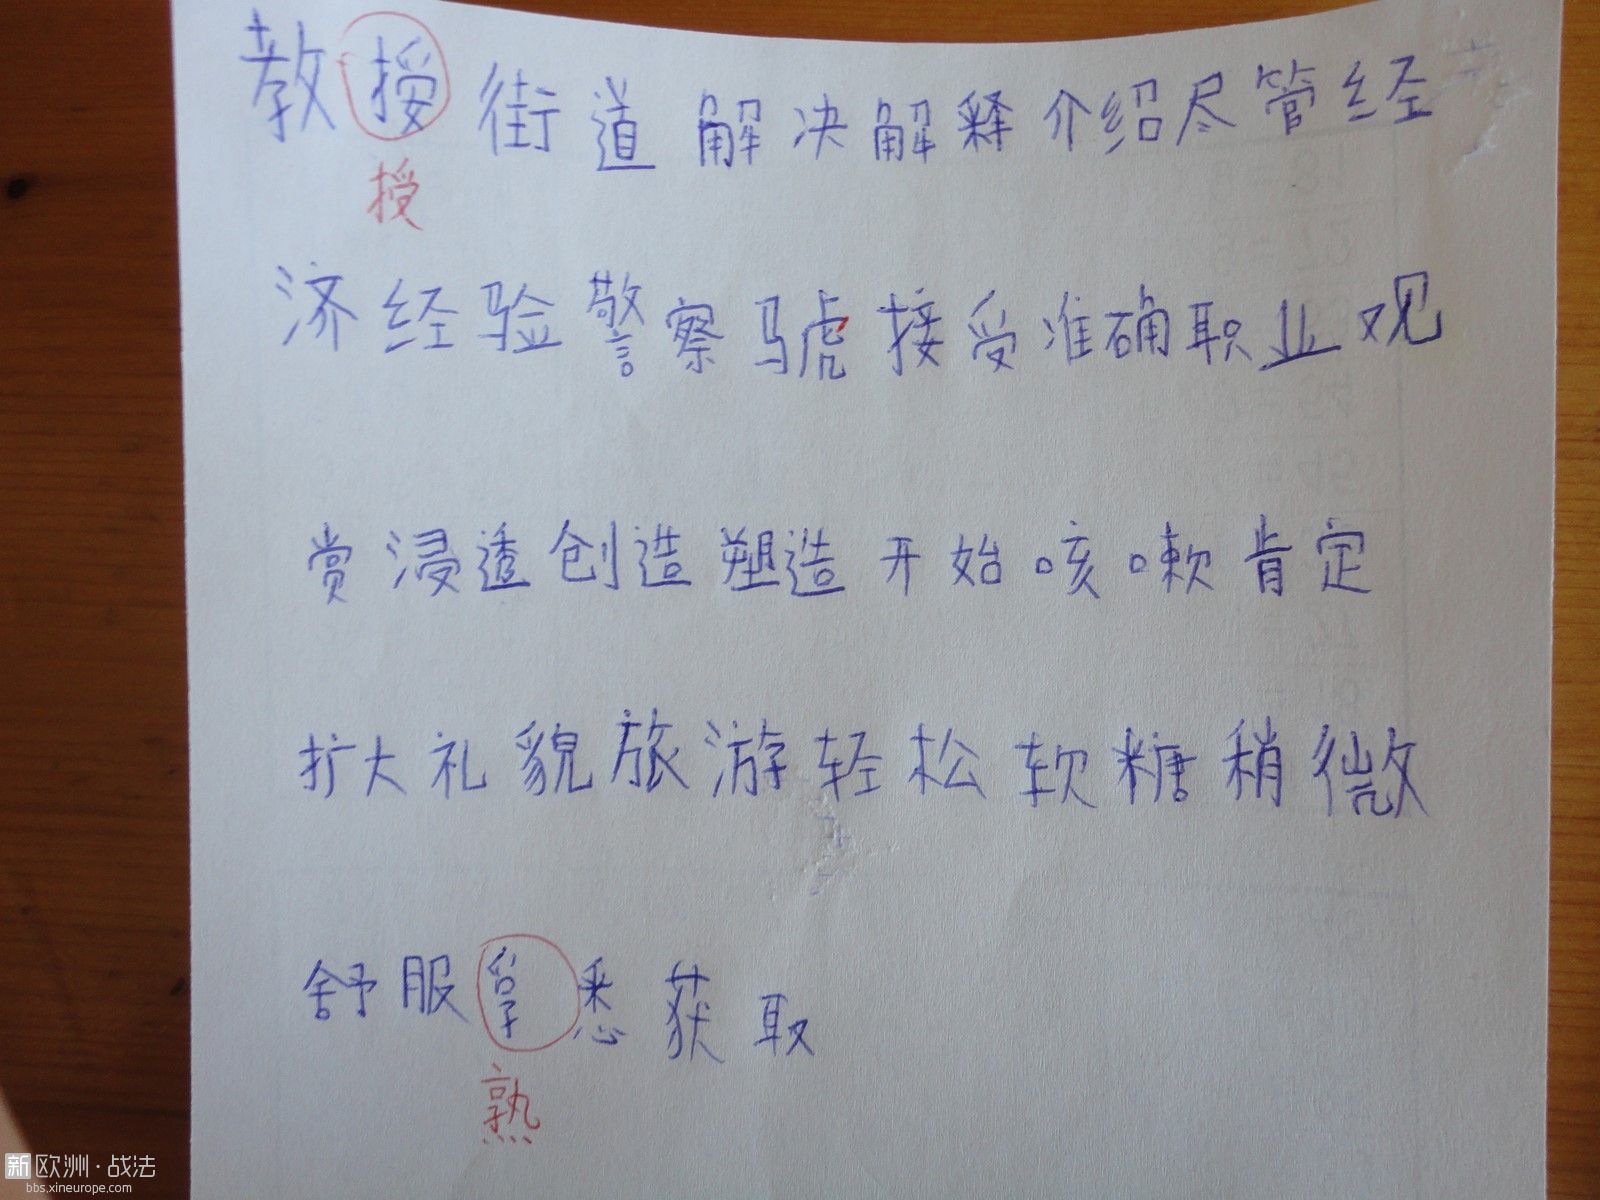 教授街道解决解释介绍尽管经
授
济经验警察马虎接受准确职业观
赏浸透创造塑造开始咳嗽肯定
扩大礼貌旅游轻松软糖稍微
舒服悉获取
熟
新欧洲·战法
bbs.xineurope.com